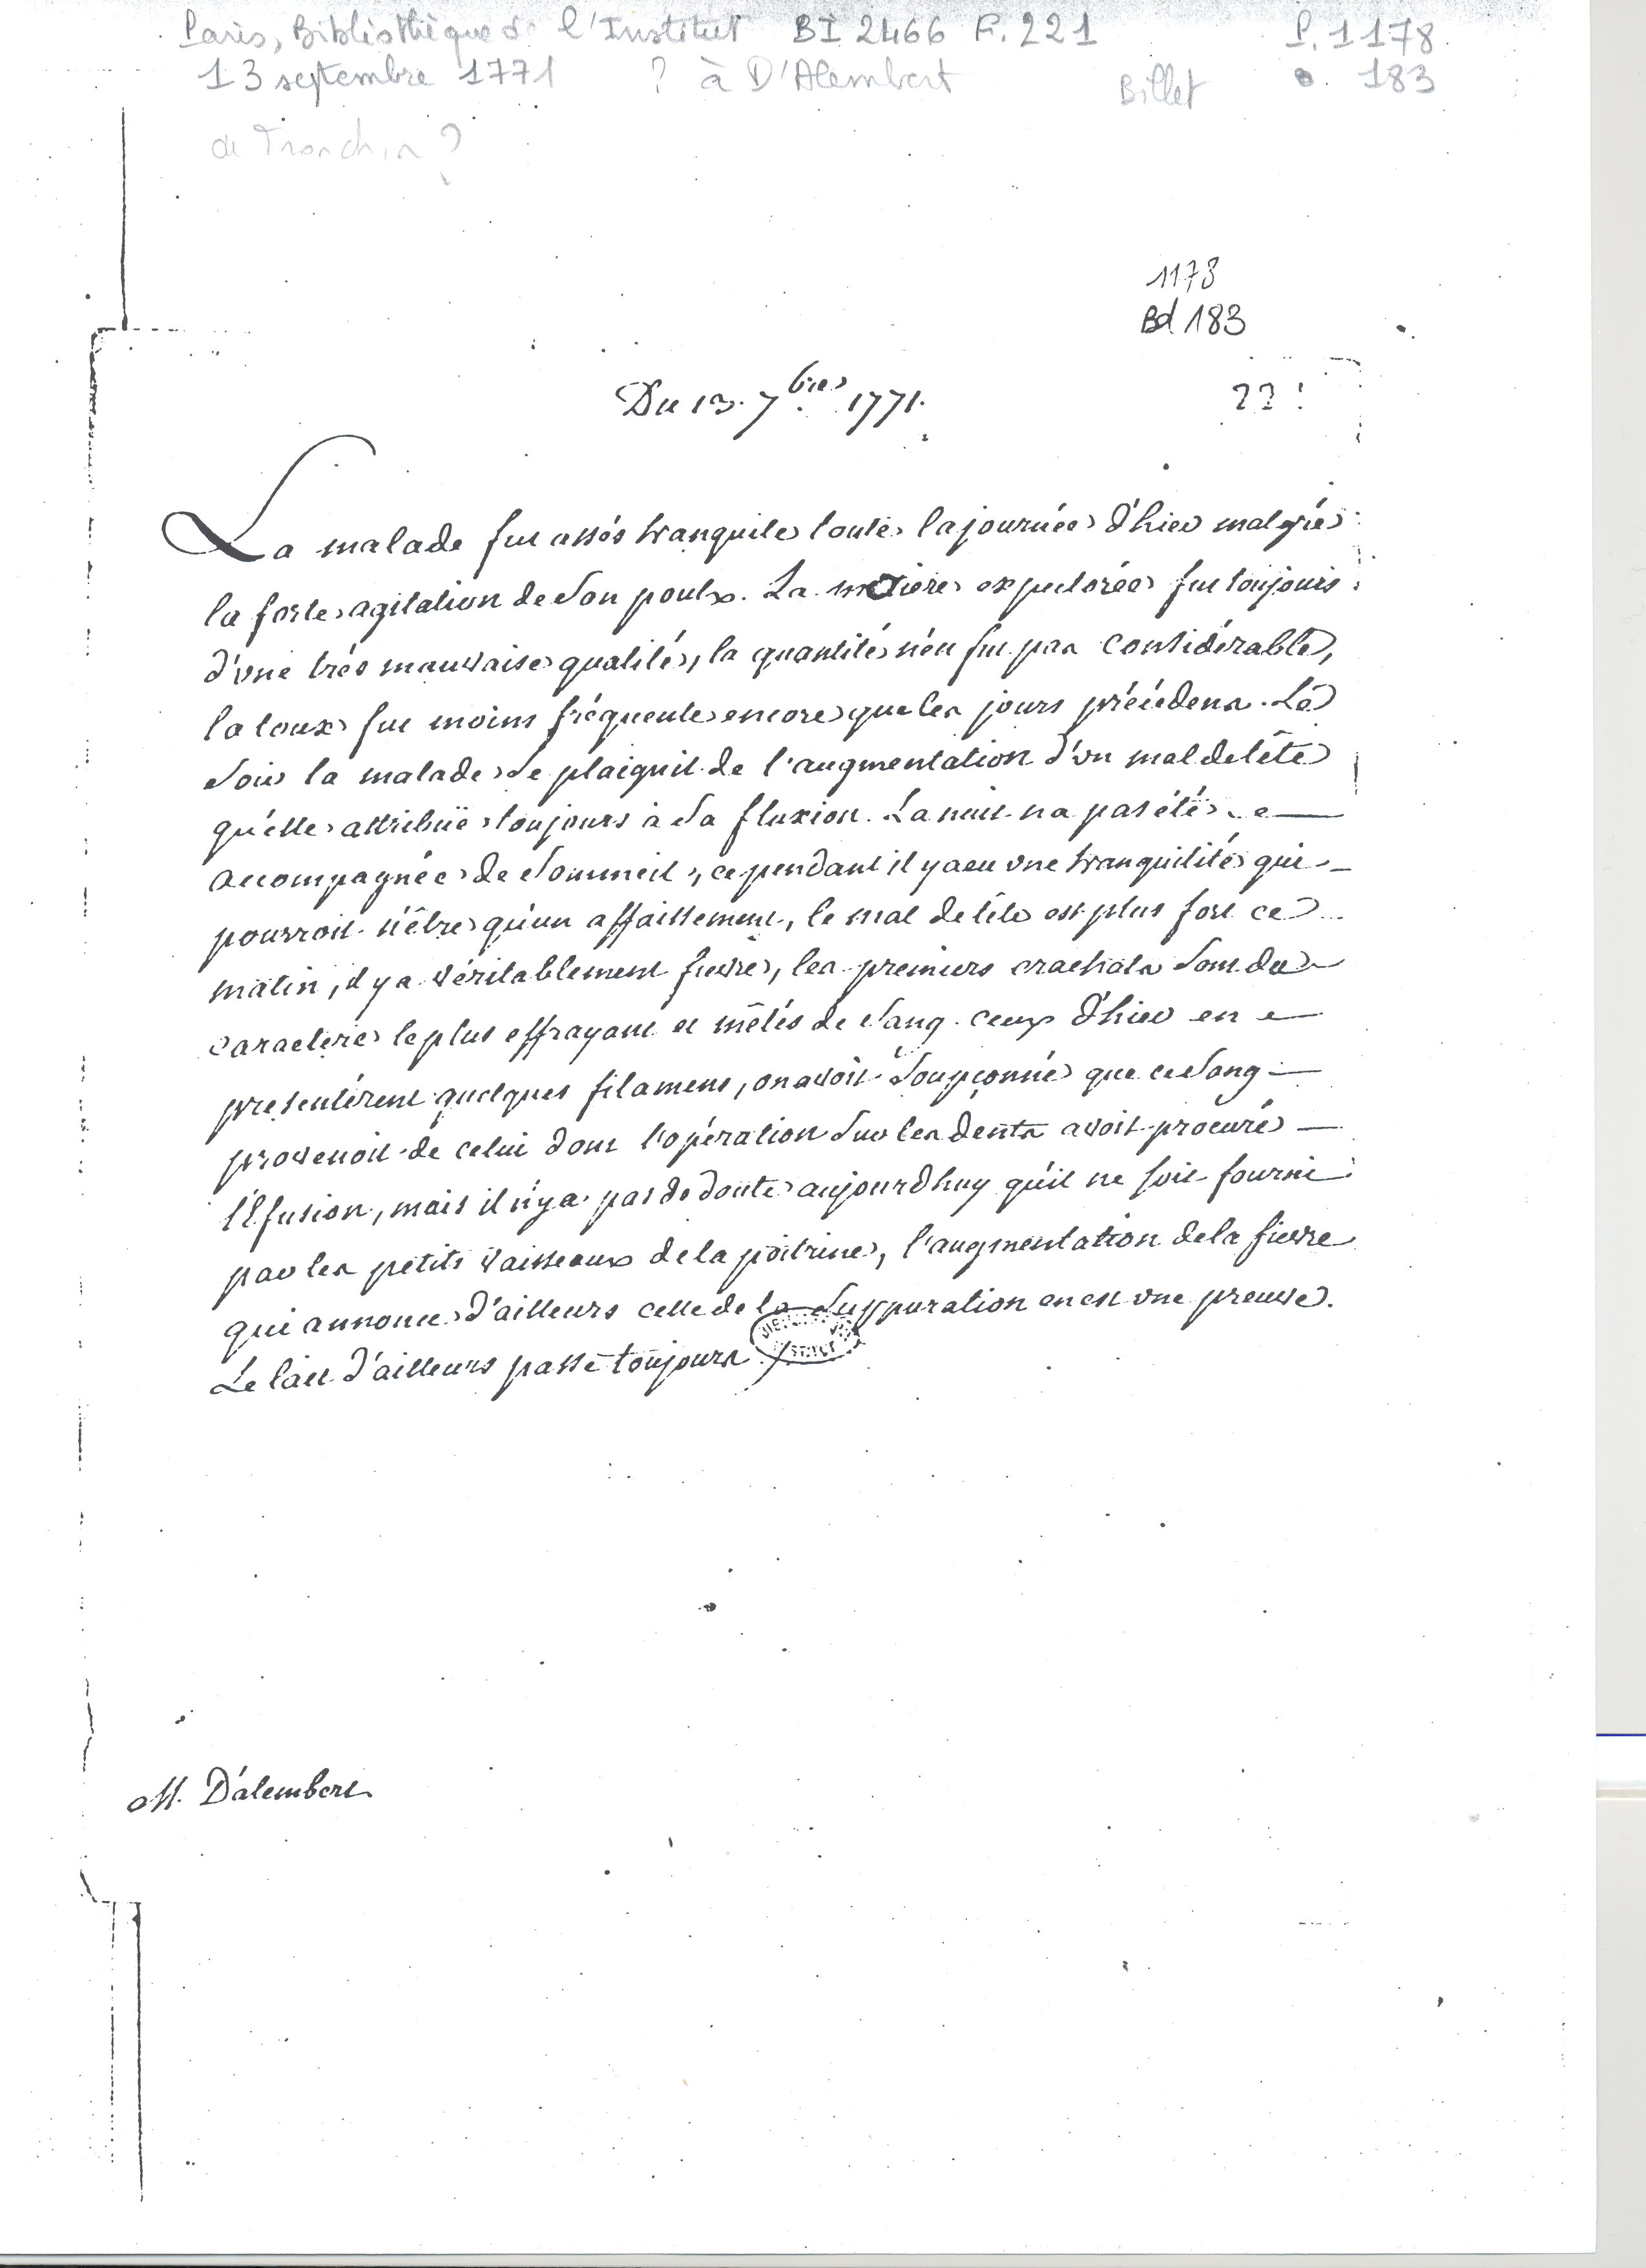 Paris, Bibliothèque de l'Institut BI 2466 F. 221 P. 1178
13 septembre 1771 ? à D'Alembert Billet 183
de Tronchin ?
1178
Bd 183
Du 13. 7bre 1771.
22!
La malade fut assés tranquile toute la journée d'hier malgré
la forte agitation de son poulx. La matiere expectorée fut toujours
d'une trés mauvaise qualité, la quantité n'en fut pas considérable,
la toux fut moins fréquente encore que les jours précédens. Le
soir la malade se plaignit de l'augmentation d'un mal de tête
qu'elle attribüe toujours à sa fluxion. La nuit n'a pas été
accompagnée de sommeil, cependant il y a eu une tranquilité qui
pourroit n'être qu'un affaissement, le mal de tête est plus fort ce
matin, il y a véritablement fievre, les premiers crachats sont du
caractere le plus effrayant et mêlés de sang. ceux d'hier en
presentérent quelques filamens, on avoit soupçonné que ce sang
provenoit de celui dont l'opération sur les dents avoit procuré
l'éfusion, mais il n'y a pas de doute aujourdhuy qu'il ne soit fourni
par les petits vaisseaux de la poitrine, l'augmentation de la fievre
qui annonce d'ailleurs celle de la suppuration en est une preuve.
Le lait d'ailleurs passe toujours
M. D'alembert